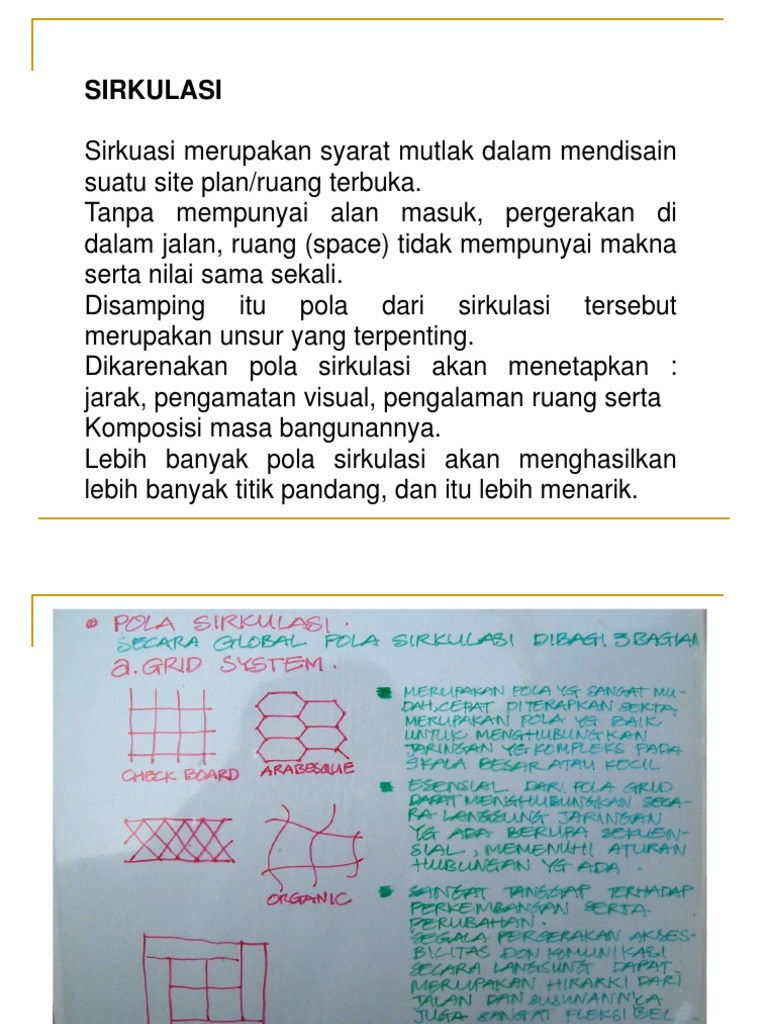 SIRKULASI
Sirkuasi merupakan syarat mutlak dalam mendisain
suatu site plan/ruang terbuka.
Tanpa mempunyai alan masuk, pergerakan di
dalam jalan, ruang (space) tidak mempunyai makna
serta nilai sama sekali.
Disamping itu pola dari sirkulasi tersebut
merupakan unsur yang terpenting.
Dikarenakan pola sirkulasi akan menetapkan :
jarak, pengamatan visual, pengalaman ruang serta
Komposisi masa bangunannya.
Lebih banyak pola sirkulasi akan menghasilkan
lebih banyak titik pandang, dan itu lebih menarik.
POLA SIRKULASI.
SECARA GLOBAL POLA SIRKULASI DIBAGI 3 BAGIAN
a. GRID SYSTEM.
CHECK BOARD
ARABESQUE
ORGANIC
MERUPAKAN POLA YG SANGAT MU-
DAH, CEPAT DITERAPKAN SERTA
MERUPAKAN POLA YG BAIK
UNTUK MENGHUBUNGKAN
JARINGAN YG KOMPLEKS PADA
SKALA BESAR ATAU KECIL
ESENSIAL DARI POLA GRID
DAPAT MENGHUBUNGKAN SECA-
RA LANGSUNG JARINGAN
YG ADA BERUPA SEKUEN-
SIAL, MEMENUHI ATURAN
HUBUNGAN YG ADA.
SANGAT TANGGAP TERHADAP
PERKEMBANGAN SERTA
PERUBAHAN.
SEGALA PERGERAKAN AKSES-
BILITAS DAN KOMUNIKASI
SECARA LANGSUNG DAPAT
MERUPAKAN HIRARKI DARI
JALAN DAN SUSUNANNYA
JUGA SANGAT FLEKSIBEL